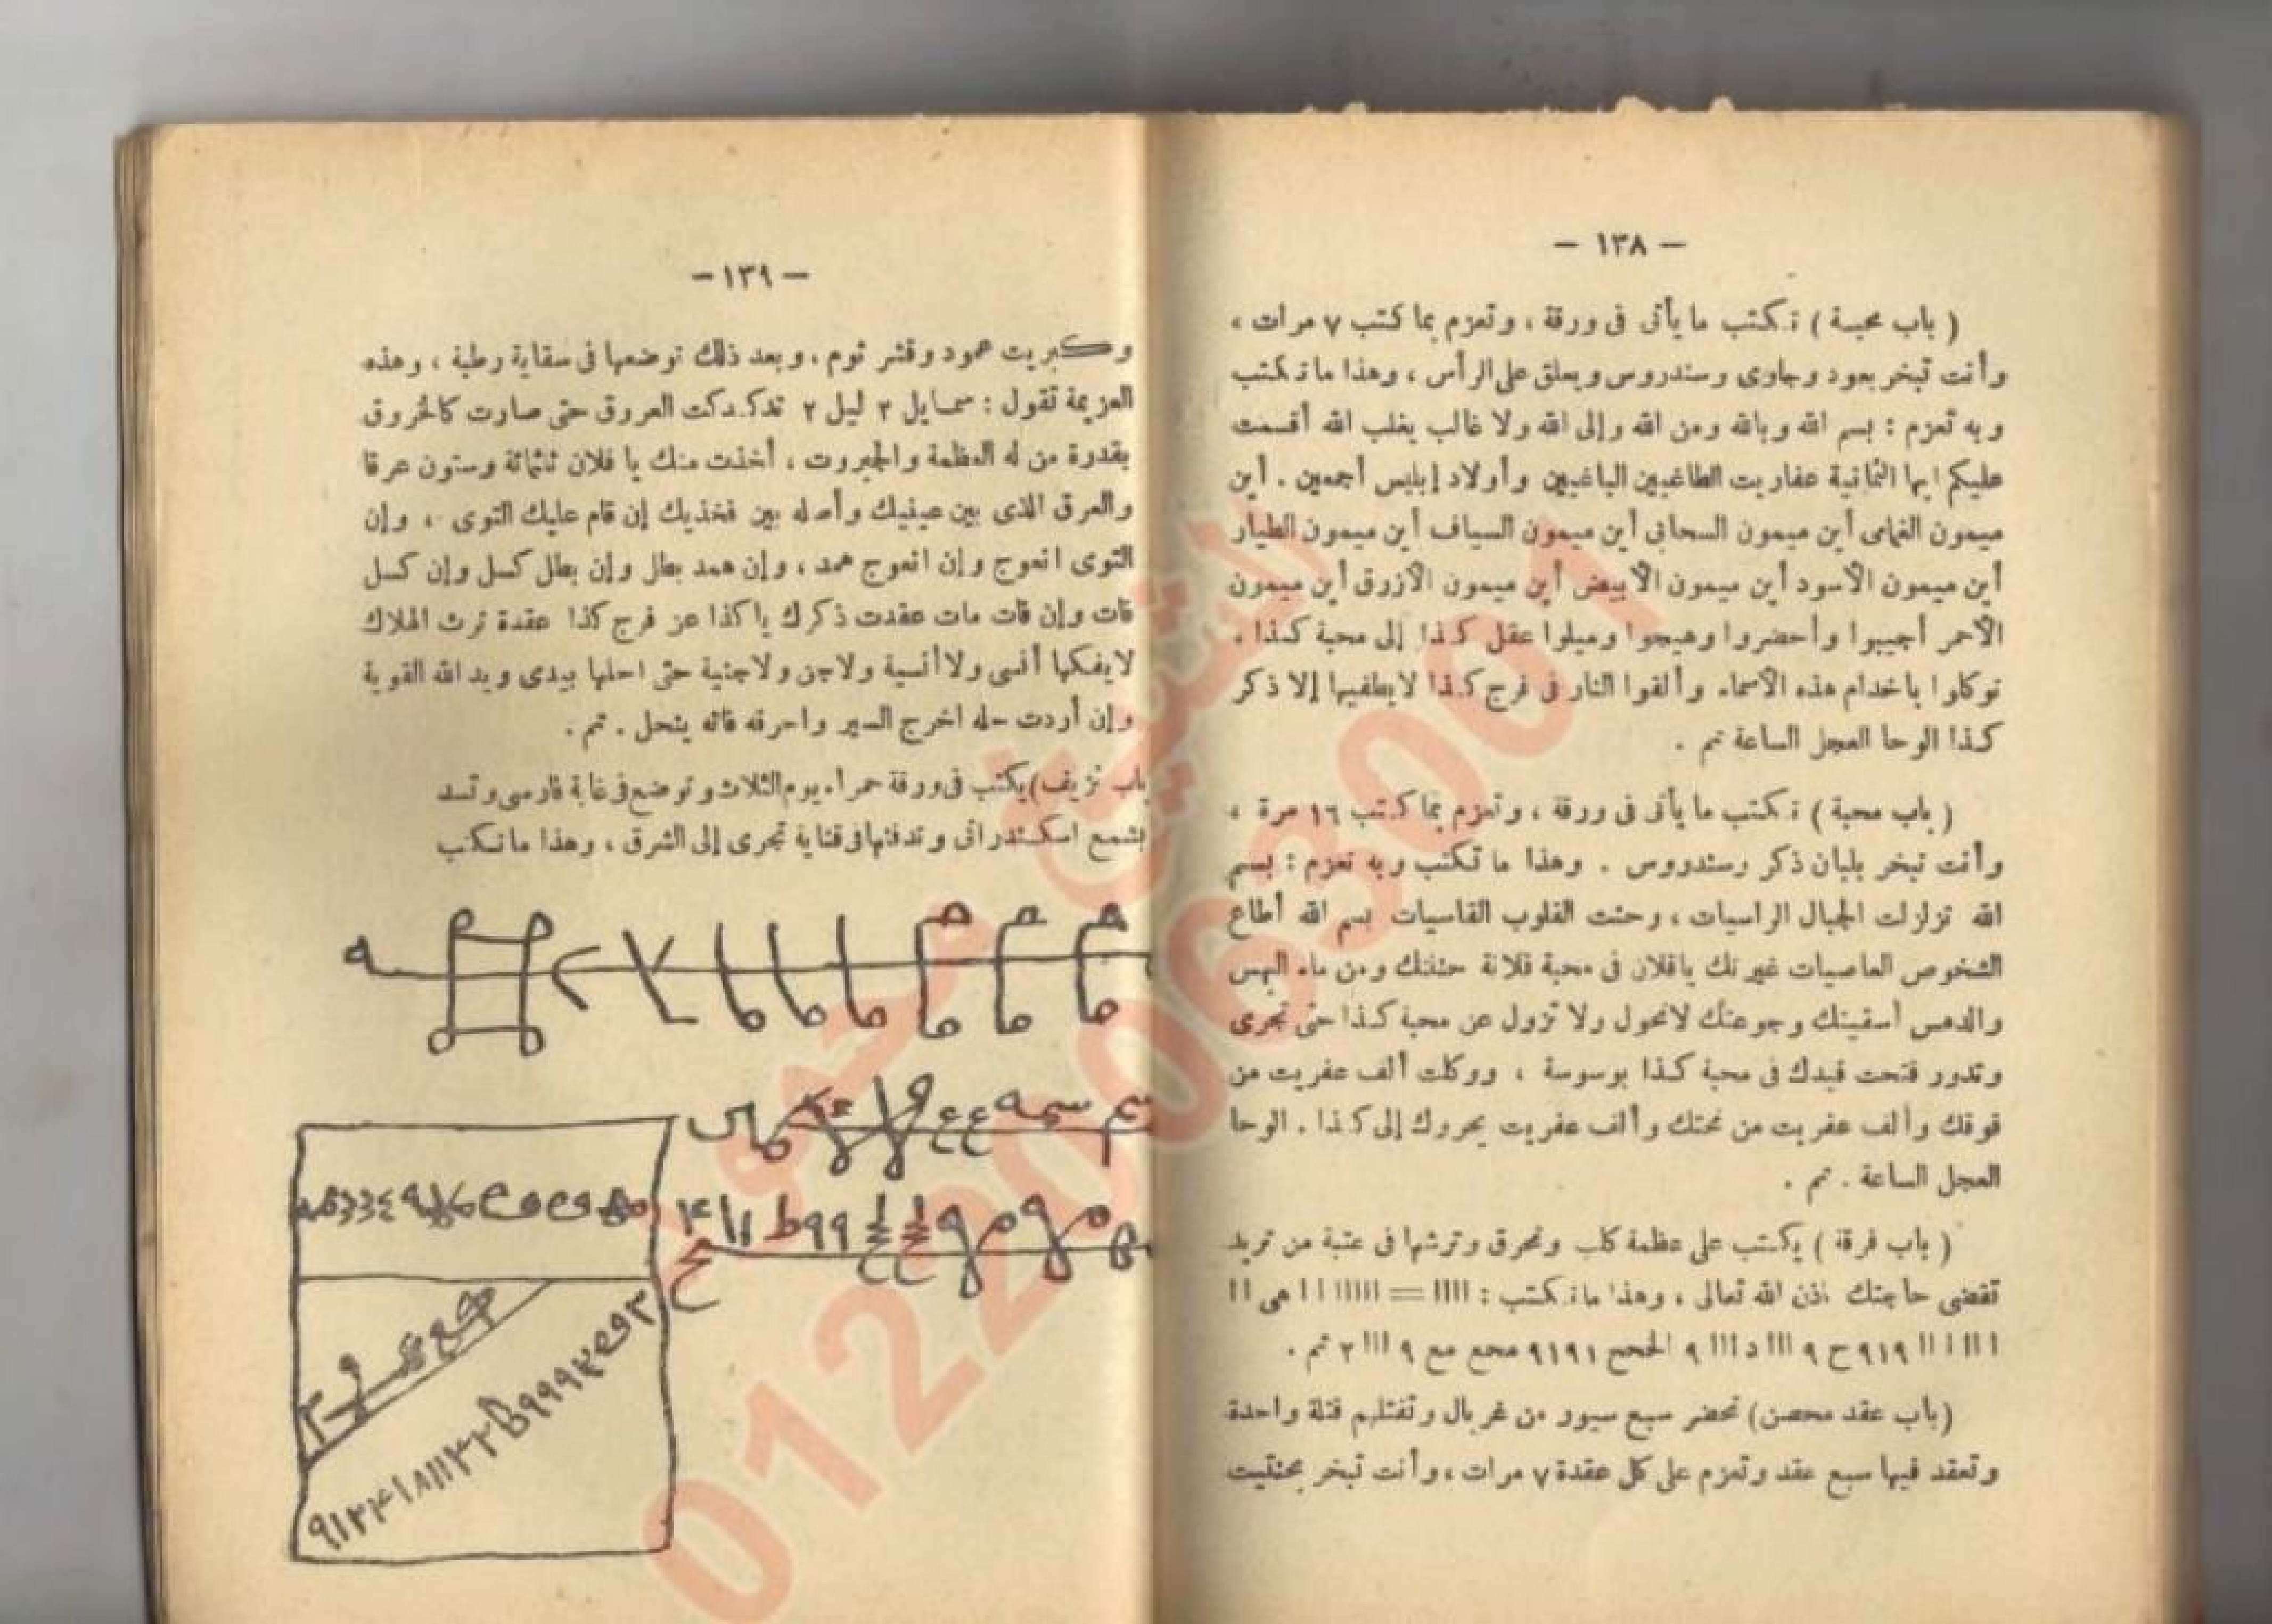 — ١٣٨ —
( باب محبة ) تكتب ما يأتى فى ورقة ، وتعزم بما كتب ٧ مرات ،
وأنت تبخر بعود وجاوى وسندروس ويعلق على الرأس ، وهذا ما تكتب
وبه تعزم : بسم الله وبالله ومن الله وإلى الله ولا غالب يغلب الله أقسمت
عليكم ايها الثمانية عفاريت الطاغيين الباغيين وأولاد إبليس أجمعين . أين
ميمون الغمامى أين ميمون السحابى أين ميمون السياف أين ميمون الطيار
أين ميمون الأسود أين ميمون الأبيض أين ميمون الأزرق أين ميمون
الأحمر أجيبوا وأحضروا وهيجوا وميلوا عقل كذا إلى محبة كذا ،
توكلوا ياخدام هذه الأسماء وألقوا النار فى فرج كذا لا يطفيها إلا ذكر
كذا الوحا العجل الساعة تم .
( باب محبة ) تكتب ما يأتى فى ورقة ، وتعزم بما كتب ١٦ مرة ،
وأنت تبخر بلبان ذكر وسندروس . وهذا ما تكتب وبه تعزم : بسم
الله تزلزلت الجبال الراسيات ، وحنت القلوب القاسيات بسم الله أطاع
الشخوص العاصيات غيرتك يافلان فى محبة فلانة حننتك ومن ماء
والدهس أسقيتك وجوعتك لاتحول ولا تزول عن محبة كذا حتى تجرى
وتدور فتحت قيدك فى محبة كذا بوسوسة ، ووكلت ألف عفريت من
فوقك وألف عفريت من تحتك وألف عفريت يجروك إلى كذا . الوحا
العجل الساعة . تم .
( باب فرقة ) يكتب على عظمة كلب وتحرق وترشها فى عتبة من تريد
تقضى حاجتك بإذن الله تعالى ، وهذا ما تكتب : ١١١١ = ١١١١١١ ١ ١ هى ١١
١ ١١ ١ ١١ ٩١٩ ح ٩ ١١١ د ١١١ ٩ ٩١٩١ محع مع ٩ ١١١ ٢ تم .
(باب عقد محصن) تحضر سبع سيور من غربال وتفتلهم فتلة واحدة
وتعقد فيها سبع عقد وتعزم على كل عقدة ٧ مرات ، وأنت تبخر بحنتيت
— ١٣٩ —
وكبريت عمود وقشر ثوم . وبعد ذلك توضعها فى سقاية رطبة ، وهذه
العزيمة تقول : سمايل ٢ ليل ٢ تدكدكت العروق حتى صارت كالخروق
بقدرة من له العظمة والجبروت ، أخذت منك يا فلان ثلثمائة وستون عرقا
والعرق الذى بين عينيك وأصله بين فخذيك إن قام عليك التوى ، وإن
التوى انعوج وإن انعوج همد ، وإن همد بطل وإن بطل كسل وإن كسل
فات وإن فات مات عقدت ذكرك ياكذا عن فرج كذا عقدة ترث الهلاك
لا يفكها أنسى ولا أنسية ولا جن ولا جنية حتى احلها بيدى وبيد الله القوية
وإن أردت حله اخرج السير واحرقه فانه ينحل . تم .
باب نزيف) يكتب فى ورقة حمراء يوم الثلاث وتوضع فى غابة فارسى وتسد
بشمع اسكندرانى وتدفنها فى قناية تجرى إلى الشرق ، وهذا ما تكتب
01220063001